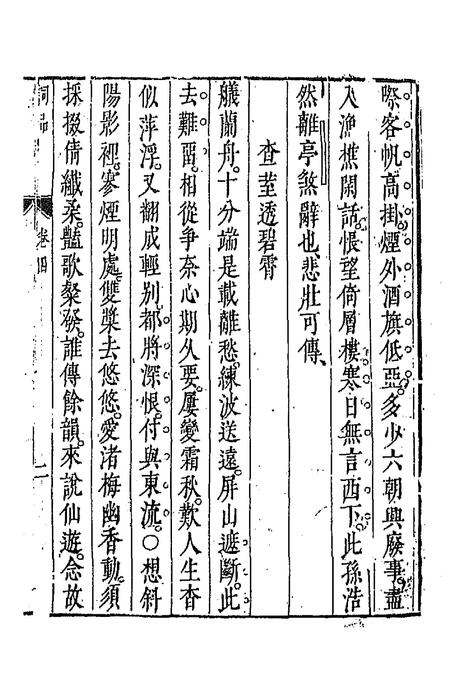 際客帆高掛煙外酒旗低亞多少六朝興廢事盡
入漁樵閒話悵望倚層樓寒日無言西下此孫浩
然離亭煞辭也悲壯可傳
查荎透碧霄
艤蘭舟十分端是載離愁練波送遠屏山遮斷此
去難留相從爭奈心期久要屢變霜秋歎人生杳
似萍浮又翻成輕別都將深恨付與東流○想斜
陽影裡寥煙明處雙槳去悠悠愛渚梅幽香動須
採掇倩纖柔豔歌粲發誰傳餘韻來說仙遊念故
詞品 卷四 二